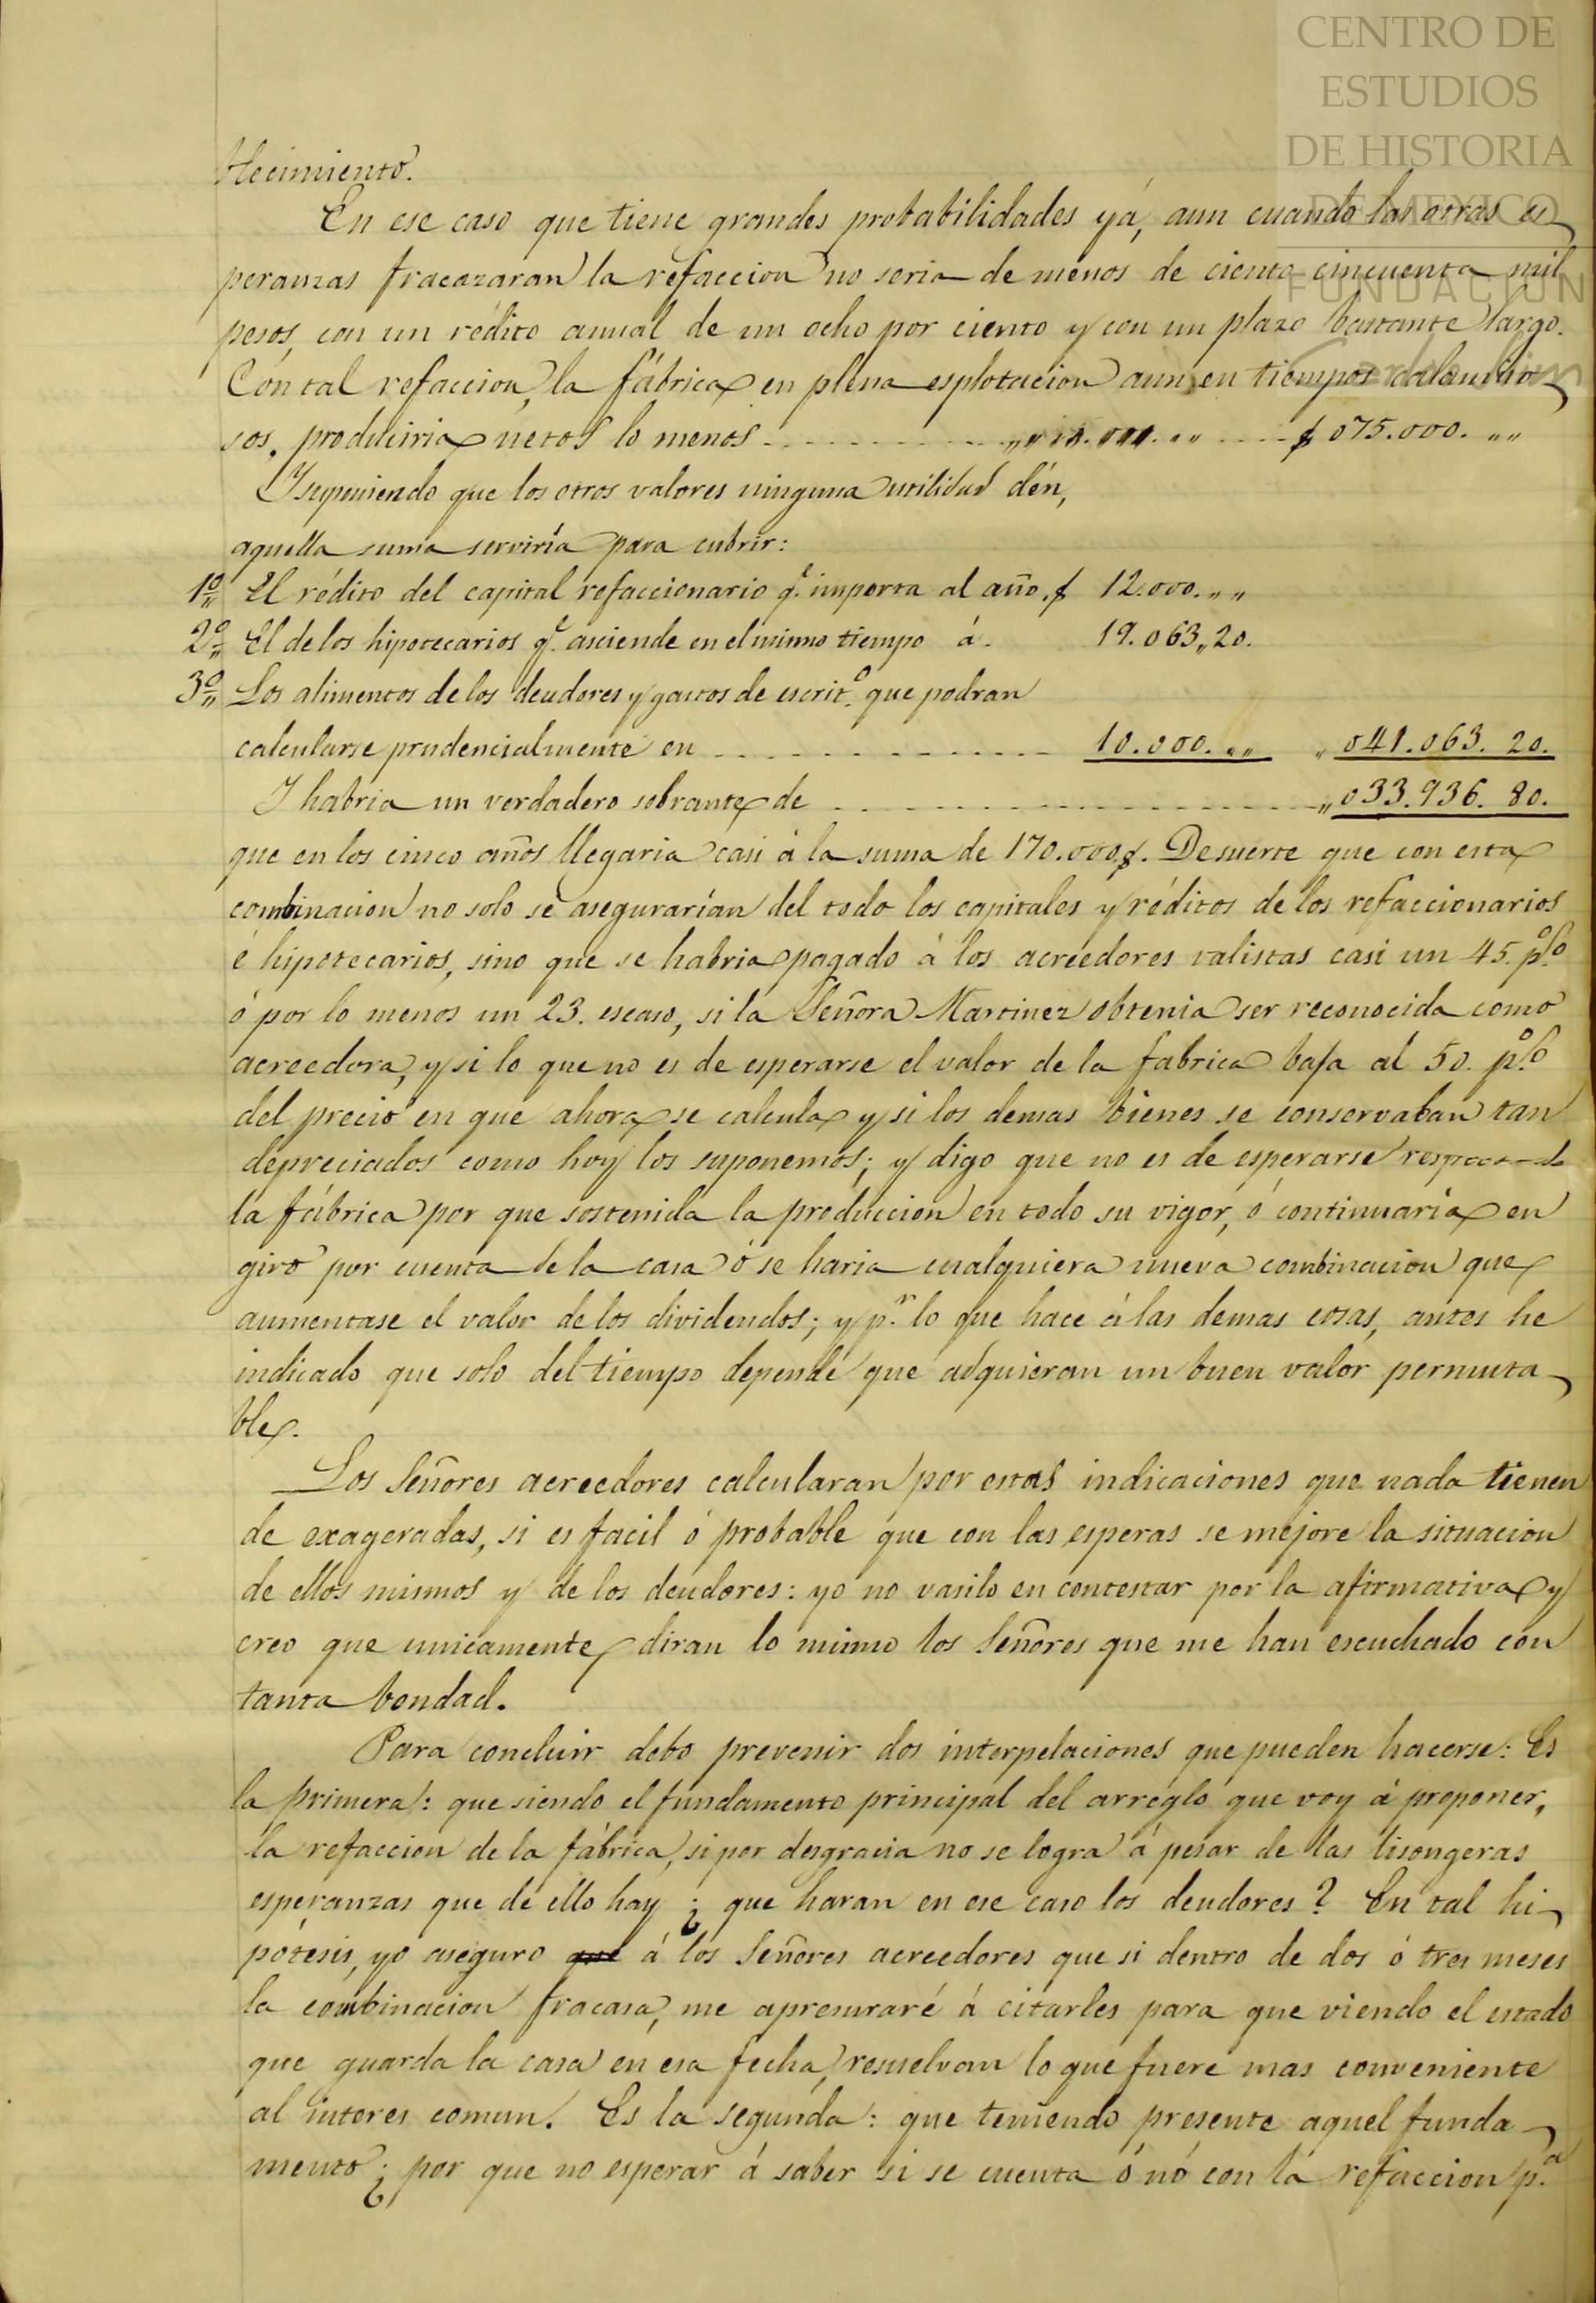 CENTRO DE
ESTUDIOS
DE HISTORIA
DE MEXICO
FUNDACION
blecimiento.
En ese caso que tiene grandes probabilidades yá, aun cuando las otras es
peranzas fracazaran la refaccion no seria de menos de ciento cincuenta mil
pesos, con un rédito anual de un ocho por ciento y con un plazo bastante largo.
Con tal refaccion, la fábrica en plena esplotacion aun en tiempos calamito
sos, produciria netos lo menos $ 075.000. „„
Y suponiendo que los otros valores ninguna utilidad dén,
aquella suma serviría para cubrir:
1º El rédito del capital refaccionario q.e importa al año. $ 12.000. „„
2º El de los hipotecarios q.e asciende en el mismo tiempo á. 19.063„20.
3º Los alimentos de los deudores y gastos de escrit.o que podran
calcularse prudencialmente en 10.000. „„ „ 041.063. 20.
Y habria un verdadero sobrante de „ 033.936. 80.
que en los cinco años llegaria casi á la suma de 170.000$. De suerte que con esta
combinacion no solo se asegurarían del todo los capitales y réditos de los refaccionarios
é hipotecarios, sino que se habria pagado á los acreedores valistas casi un 45. p.o/o
ó por lo menos un 23. escaso, si la Señora Martinez obtenia ser reconocida como
acreedora, y si lo que no es de esperarse el valor de la fabrica baja al 50. p.o/o
del precio en que ahora se calcula y si los demas bienes se conservaban tan
depreciados como hoy los suponemos; y digo que no es de esperarse respecto de
la fábrica por que sostenida la produccion en todo su vigor, ó continuaría en
giro por cuenta de la casa ó se haria cualquiera nueva combinacion que
aumentase el valor de los dividendos; y p.r lo que hace á las demas cosas, antes he
indicado que solo del tiempo depende que adquieran un buen valor permuta
ble.
Los Señores acreedores calcularan por estas indicaciones que nada tienen
de exageradas, si es facil ó probable que con las esperas se mejore la situacion
de ellos mismos y de los deudores: yo no vasilo en contestar por la afirmativa y
creo que unicamente diran lo mismo los Señores que me han escuchado con
tanta bondad.
Para concluir debo prevenir dos interpelaciones que pueden hacerse: Es
la primera: que siendo el fundamento principal del arreglo que voy á proponer,
la refaccion de la fábrica, si por desgracia no se logra á pesar de las lisongeras
esperanzas que de ello hay ¿ que haran en ese caso los deudores? En tal hi
pótesis, yo aseguro que á los Señores acreedores que si dentro de dos ó tres meses
la combinacion fracasa, me apresuraré á citarles para que viendo el estado
que guarda la casa en esa fecha, resuelvan lo que fuere mas conveniente
al interes comun. Es la segunda: que teniendo presente aquel funda
mento ¿ por que no esperar á saber si se cuenta ó nó con la refaccion p.a